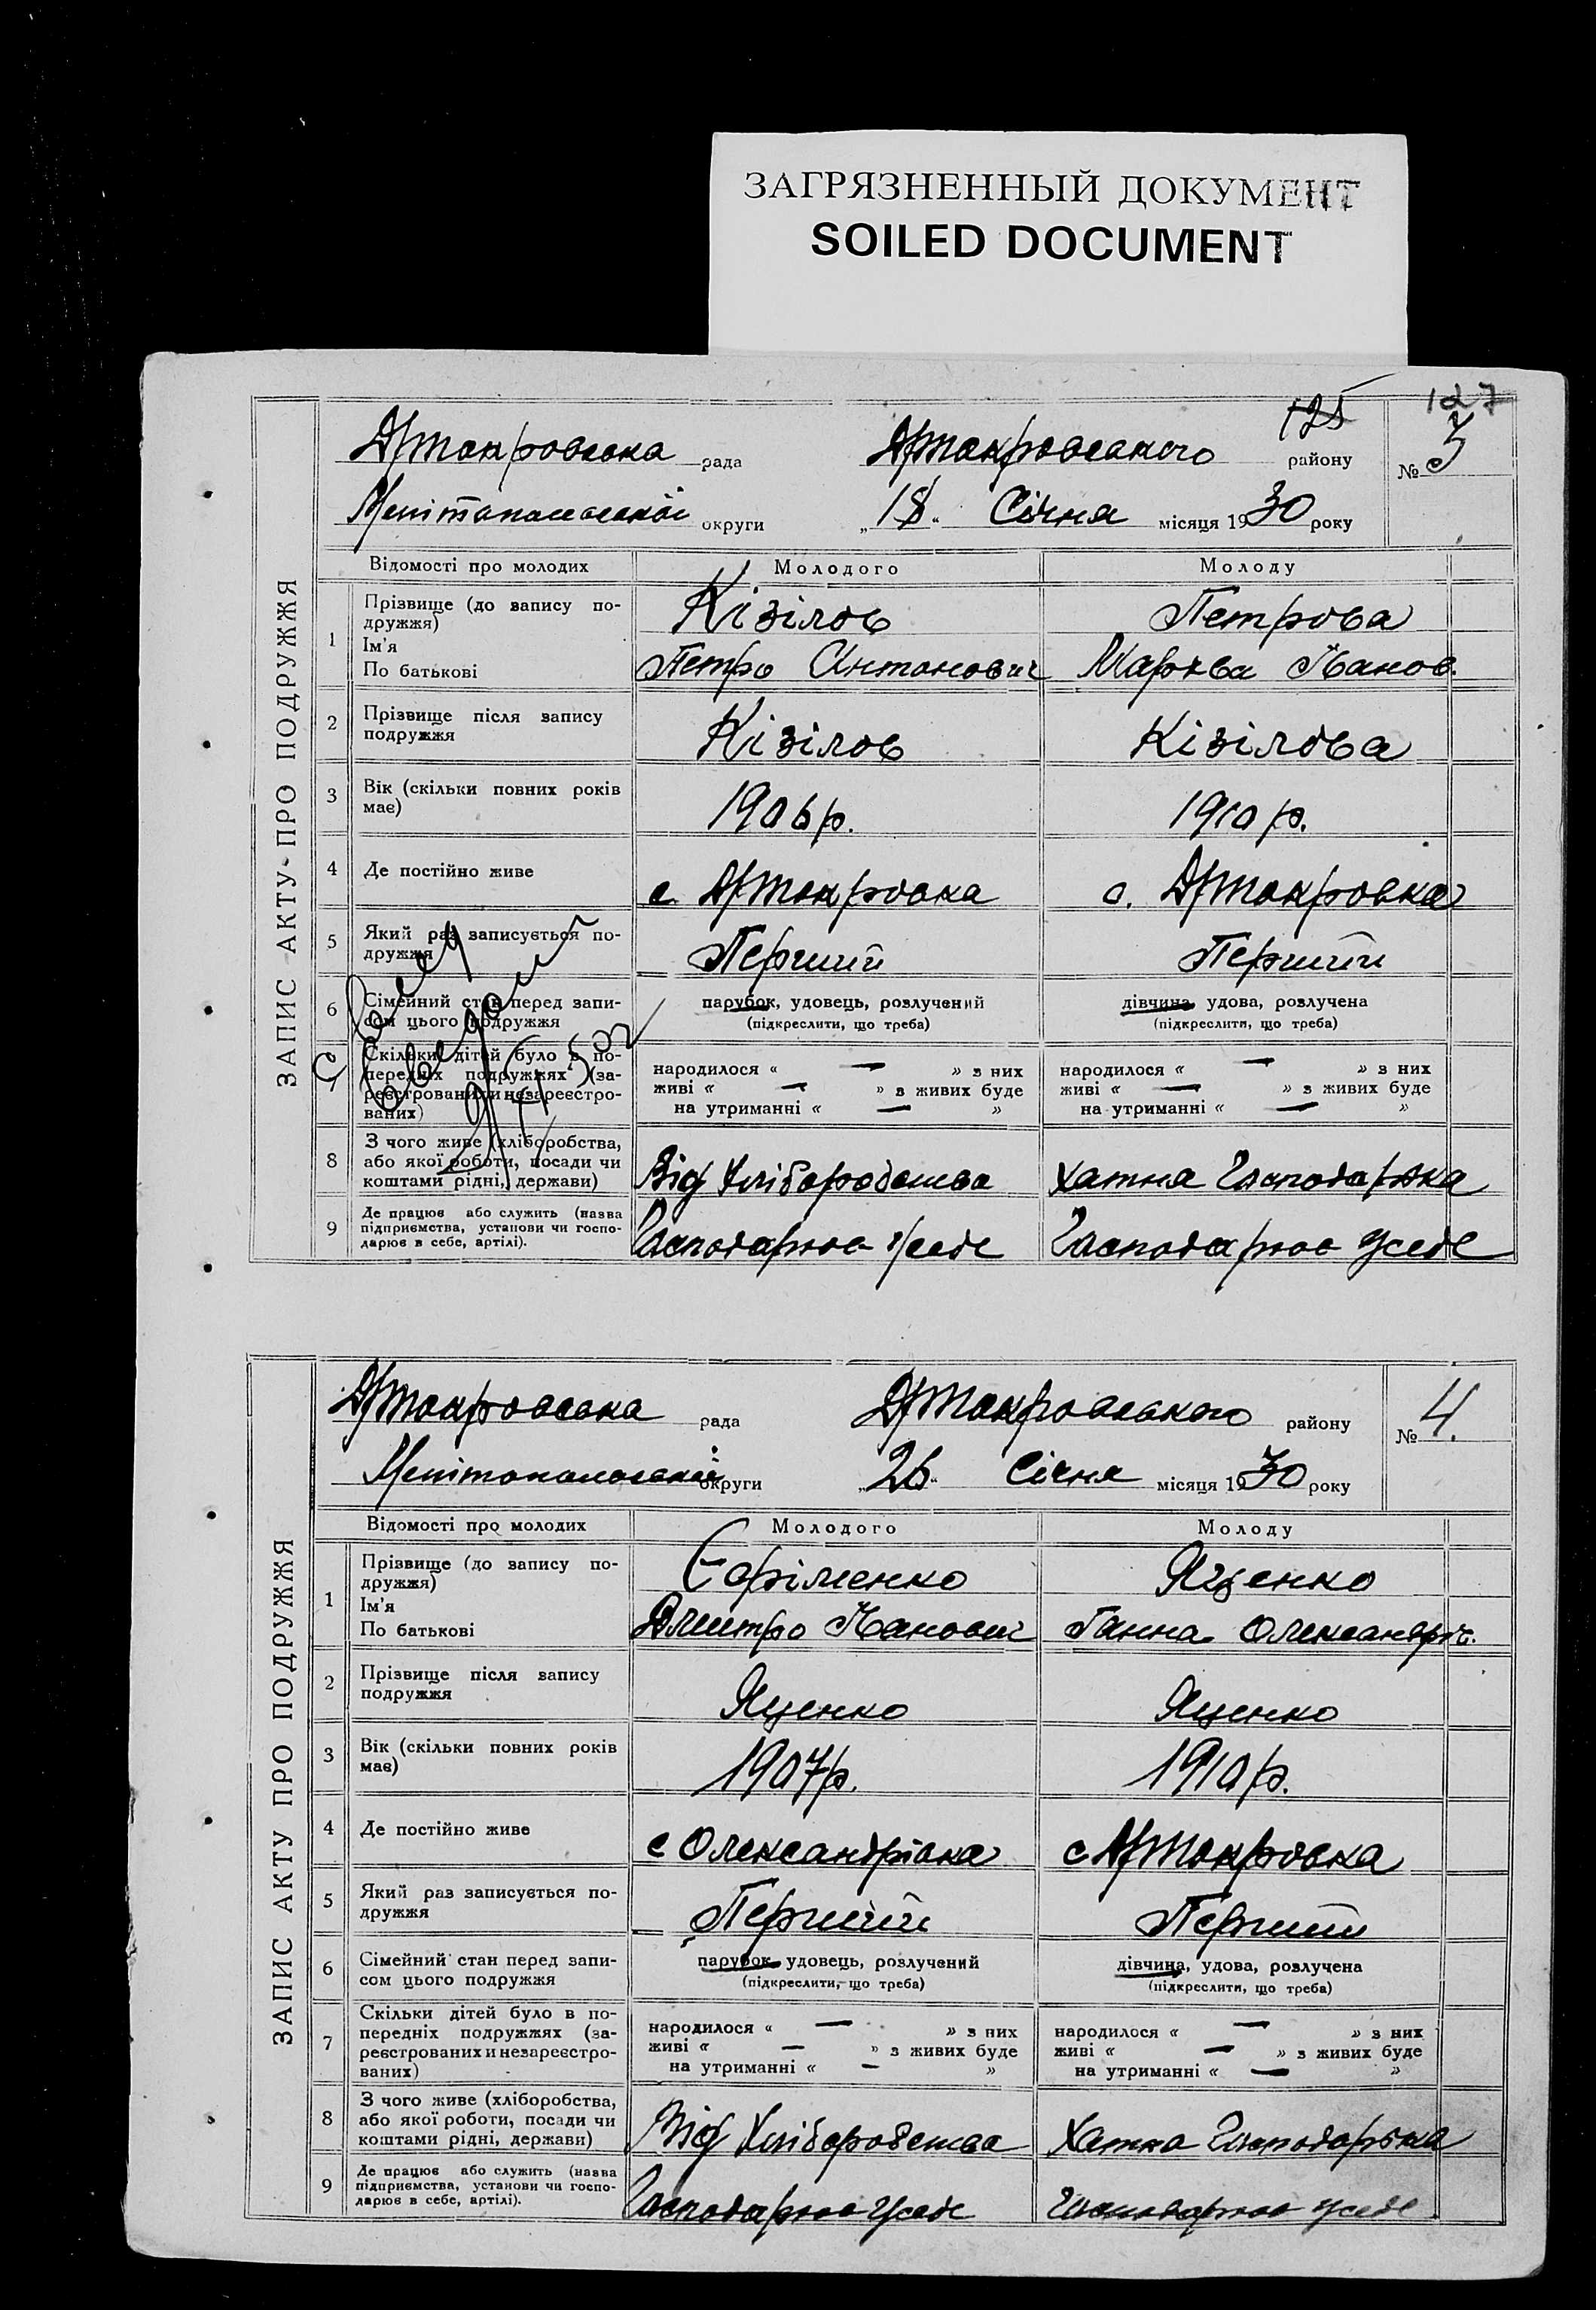 ЗАГРЯЗНЕННЫЙ ДОКУМЕНТ
SOILED DOCUMENT
127
125
рада
району
№ 3
Мелітопольської округи „18“ Січня місяця 1930 року
ЗАПИС АКТУ ПРО ПОДРУЖЖЯ
Відомості про молодих Молодого Молоду
1 Прізвище (до запису по-
дружжя) Кізілов Петрова
Ім'я
По батькові Петро Антонович Марфа Іванов.
2 Прізвище після запису
подружжя Кізілов Кізілова
3 Вік (скільки повних років
має) 1906 р. 1910 р.
4 Де постійно живе с. с.
5 Який раз записується по-
дружжя Перший Перший
6 Сімейний стан перед запи-
сом цього подружжя
парубок, удовець, розлучений дівчина, удова, розлучена
(підкреслити, що треба) (підкреслити, що треба)
7 Скільки дітей було в по-
передніх подружжях (за-
реєстрованих и незареєстро-
ваних)
народилося « — » з них народилося « — » з них
живі « — » з живих буде живі « — » з живих буде
на утриманні « — » на утриманні « — »
8 З чого живе (хліборобства,
або якої роботи, посади чи
коштами рідні, держави) Від Хліборобства Хатня Господарька
9 Де працює або служить (назва
підприємства, установи чи госпо-
дарює в себе, артілі). Господарює усебе Господарює усебе
рада
району
№ 4.
Мелітопольської округи „26“ Січня місяця 1930 року
ЗАПИС АКТУ ПРО ПОДРУЖЖЯ
Відомості про молодих Молодого Молоду
1 Прізвище (до запису по-
дружжя) Єфріменко Яценко
Ім'я
По батькові Дмитро Іванович Ганна Олександрів.
2 Прізвище після запису
подружжя Яценко Яценко
3 Вік (скільки повних років
має) 1907 р. 1910 р.
4 Де постійно живе с Олександрівка с
5 Який раз записується по-
дружжя Перший Перший
6 Сімейний стан перед запи-
сом цього подружжя
парубок, удовець, розлучений дівчина, удова, розлучена
(підкреслити, що треба) (підкреслити, що треба)
7 Скільки дітей було в по-
передніх подружжях (за-
реєстрованих и незареєстро-
ваних)
народилося « — » з них народилося « — » з них
живі « — » з живих буде живі « — » з живих буде
на утриманні « — » на утриманні « — »
8 З чого живе (хліборобства,
або якої роботи, посади чи
коштами рідні, держави) Від Хліборобства Хатня Господарька
9 Де працює або служить (назва
підприємства, установи чи госпо-
дарює в себе, артілі). Господарює усебе Господарює усебе